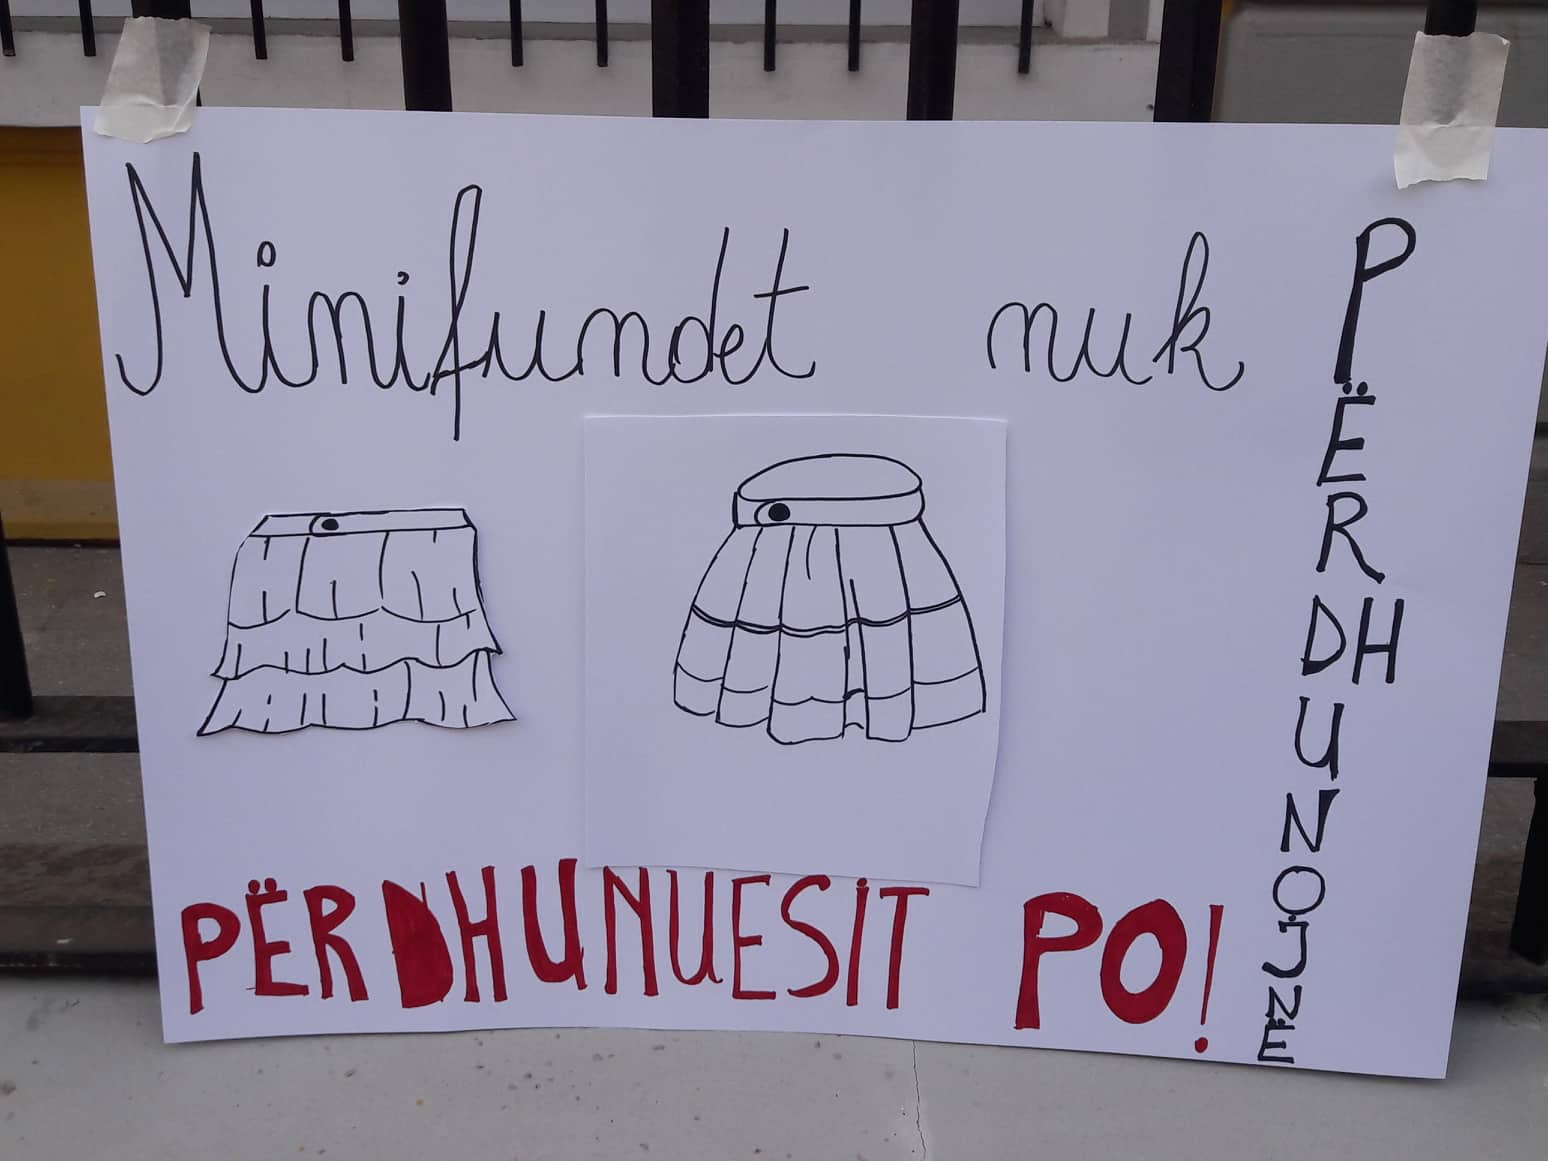 Minifundet nuk
PËRDHUNOJNE
PËRDHUNUESIT PO!